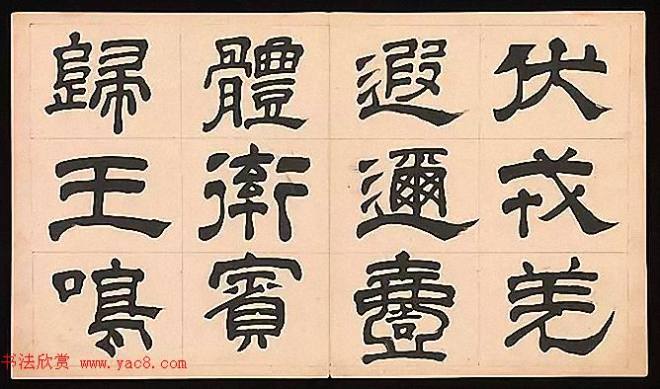 伏戎羌
遐邇壹
體率賓
歸王鳴
书法欣赏 www.yac8.com